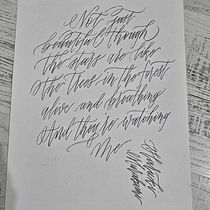 Not just
beautiful though
The stars are like
The trees in the forest
alive and breathing
And they're watching
me
Haruki
Murakami